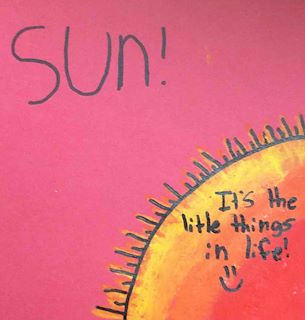 SUn!
It's the
little things
in life!